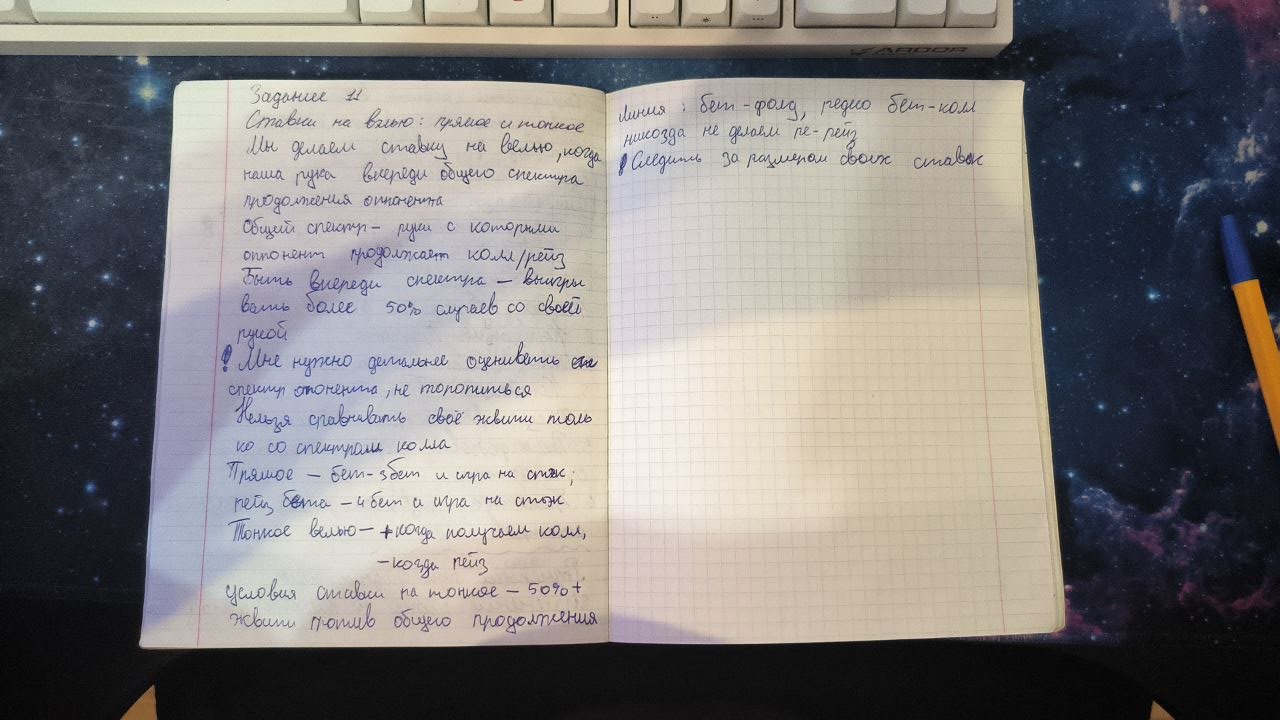 ARDOR
Задание 11
Ставки на вэлью: прямое и тонкое
Мы делаем ставку на велью, когда
наша рука впереди общего спектра
продолжения оппонента
Общий спектр - руки с которыми
оппонент продолжает колл/рейз
Быть впереди спектра - выигры
вать более 50% случаев со своей
рукой
! Мне нужно детальнее оценивать
спектр опонента, не торопиться
Нельзя сравнивать своё эквити толь
ко со спектром колла
Прямое - бет-3бет и игра на стэк;
рейз бета - 4бет и игра на стэк
Тонкое велью - + когда получаем колл,
- когда рейз
Условия ставки на тонкое - 50%+
эквити против общего продолжения
Линия: бет-фолд, редко бет-колл
никогда не делаем ре-рейз
! Следить за размером своих ставок